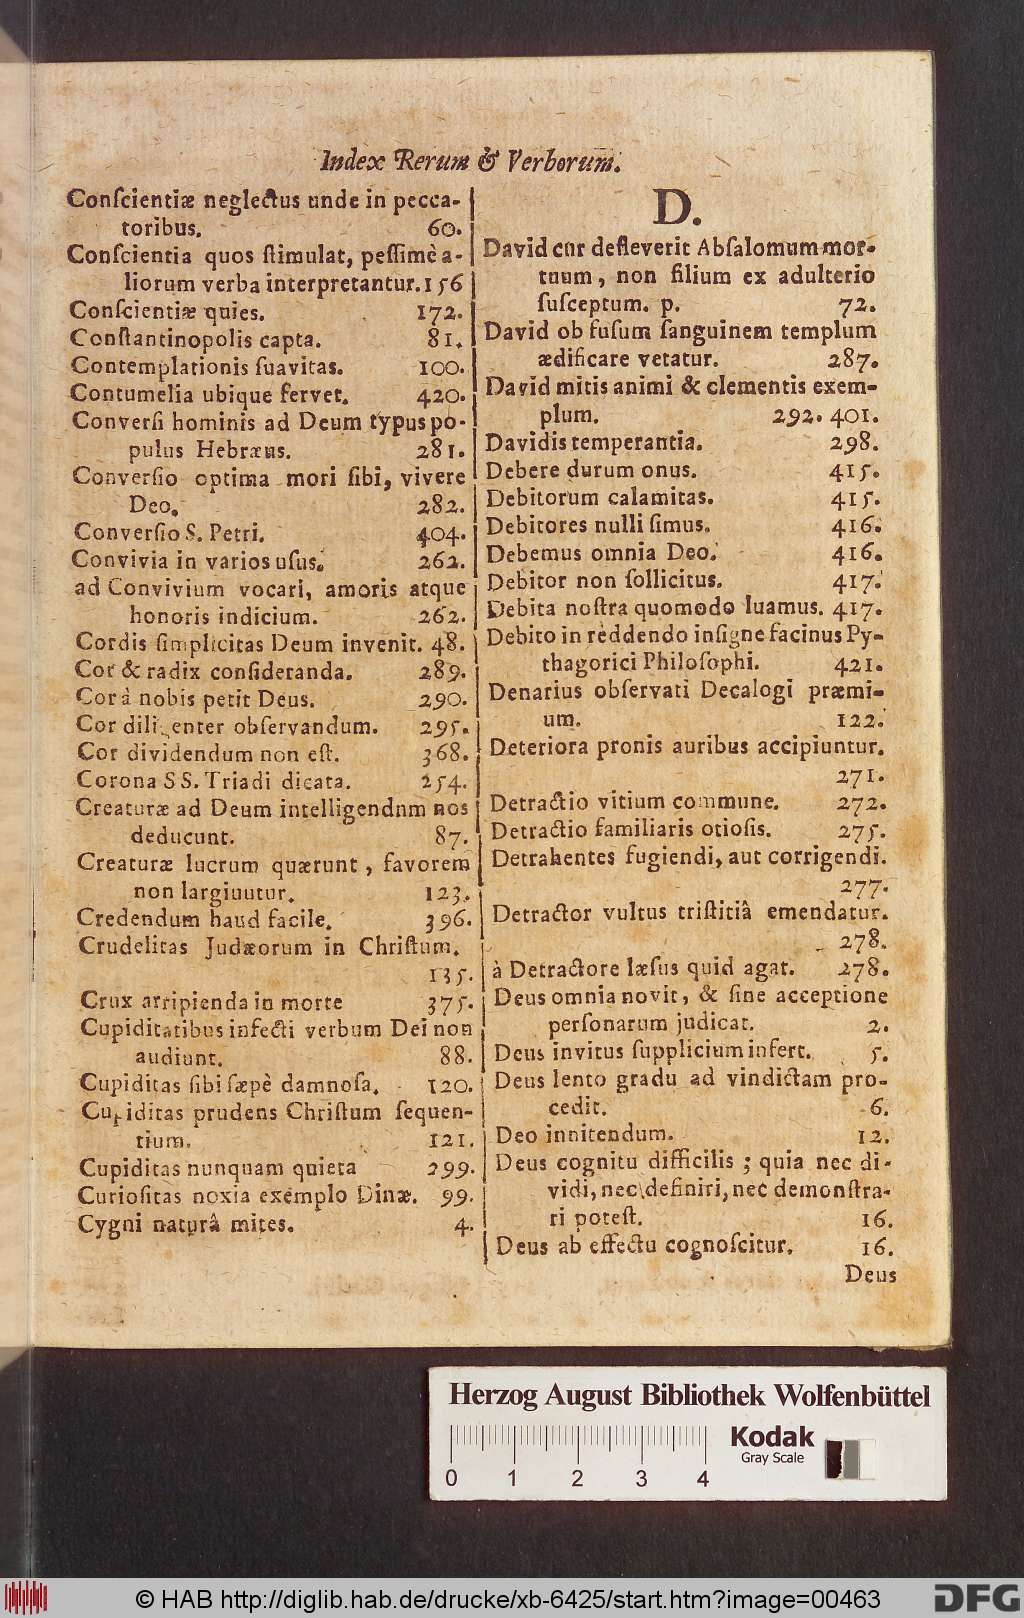 Index Rerum & Verborum.
Conſcientiæ neglectus unde in pecca-
toribus. 60.
Conſcientia quos ſtimulat, peſſimè a-
liorum verba interpretantur. 156
Conſcientiæ quies. 172.
Conſtantinopolis capta. 81.
Contemplationis ſuavitas. 100.
Contumelia ubique fervet. 420.
Converſi hominis ad Deum typus po-
pulus Hebræus. 281.
Converſio optima mori ſibi, vivere
Deo. 282.
Converſio S. Petri. 404.
Convivia in varios uſus. 262.
ad Convivium vocari, amoris atque
honoris indicium. 262.
Cordis ſimplicitas Deum invenit. 48.
Cor & radix conſideranda. 289.
Cor à nobis petit Deus. 290.
Cor diligenter obſervandum. 295.
Cor dividendum non eſt. 368.
Corona SS. Triadi dicata. 254.
Creaturæ ad Deum intelligendum nos
deducunt. 87.
Creaturæ lucrum quærunt, favorem
non largiuutur. 123.
Credendum haud facile. 396.
Crudelitas Judæorum in Chriſtum.
135.
Crux arripienda in morte 375.
Cupiditatibus infecti verbum Dei non
audiunt. 88.
Cupiditas ſibi ſæpè damnoſa. 120.
Cupiditas prudens Chriſtum ſequen-
tium. 121.
Cupiditas nunquam quieta 299.
Curioſitas noxia exemplo Dinæ. 99.
Cygni naturâ mites. 4.
D.
David cur defleverit Abſalomum mor-
tuum, non filium ex adulterio
ſuſceptum. p. 72.
David ob fuſum ſanguinem templum
ædificare vetatur. 287.
David mitis animi & clementis exem-
plum. 292. 401.
Davidis temperantia. 298.
Debere durum onus. 415.
Debitorum calamitas. 415.
Debitores nulli ſimus. 416.
Debemus omnia Deo. 416.
Debitor non ſollicitus. 417.
Debita noſtra quomodo luamus. 417.
Debito in reddendo inſigne facinus Py-
thagorici Philoſophi. 421.
Denarius obſervati Decalogi præmi-
um. 122.
Deteriora pronis auribus accipiuntur.
271.
Detractio vitium commune. 272.
Detractio familiaris otioſis. 275.
Detrahentes fugiendi, aut corrigendi.
277.
Detractor vultus triſtitiâ emendatur.
278.
à Detractore læſus quid agat. 278.
Deus omnia novit, & ſine acceptione
perſonarum judicat. 2.
Deus invitus ſupplicium infert. 5.
Deus lento gradu ad vindictam pro-
cedit. 6.
Deo innitendum. 12.
Deus cognitu difficilis; quia nec di-
vidi, nec definiri, nec demonſtra-
ri poteſt. 16.
Deus ab effectu cognoſcitur. 16.
Deus
Herzog August Bibliothek Wolfenbüttel
Kodak
Gray Scale
0 1 2 3 4
© HAB http://diglib.hab.de/drucke/xb-6425/start.htm?image=00463
DFG